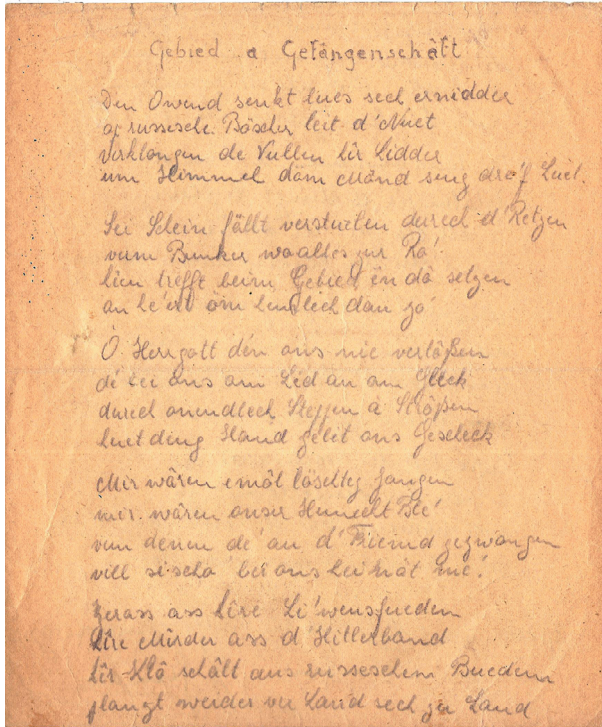 Gebied a Gefângenschâft
Den Owend senkt lues sech ernidder
op russesche Bëscher leit d'Nuet
verklongen de Vullen hir Lidder
um Himmel dâm Mând seng drôf Luet.
Säi Schein fällt verstuelen duerch d'Retzen
vum Bunker wo alles zur Ro'
hien trefft beim Gebied ên dô setzen
an he'ert ôm dan zo'
O Herrgott dên ons nie verlôssen
dê bei ons am Lêd an am Gleck
duerch onendlech Steppen a Strôssen
huet deng Hand geleet ons Gescheck
Mir wâren emôl lôschteg Jongen
mir wâren onser Hemecht
vun denen de' an d'Friemd gezwongen
vill si scho' bei ons hei nôt me'!
Zerass ass hire Li'wensfuedem
Hire Mierder ass d'Hitlerband
hir Klô schâlt aus russeschem Buedem
plangt weider vu Land sech zu Land